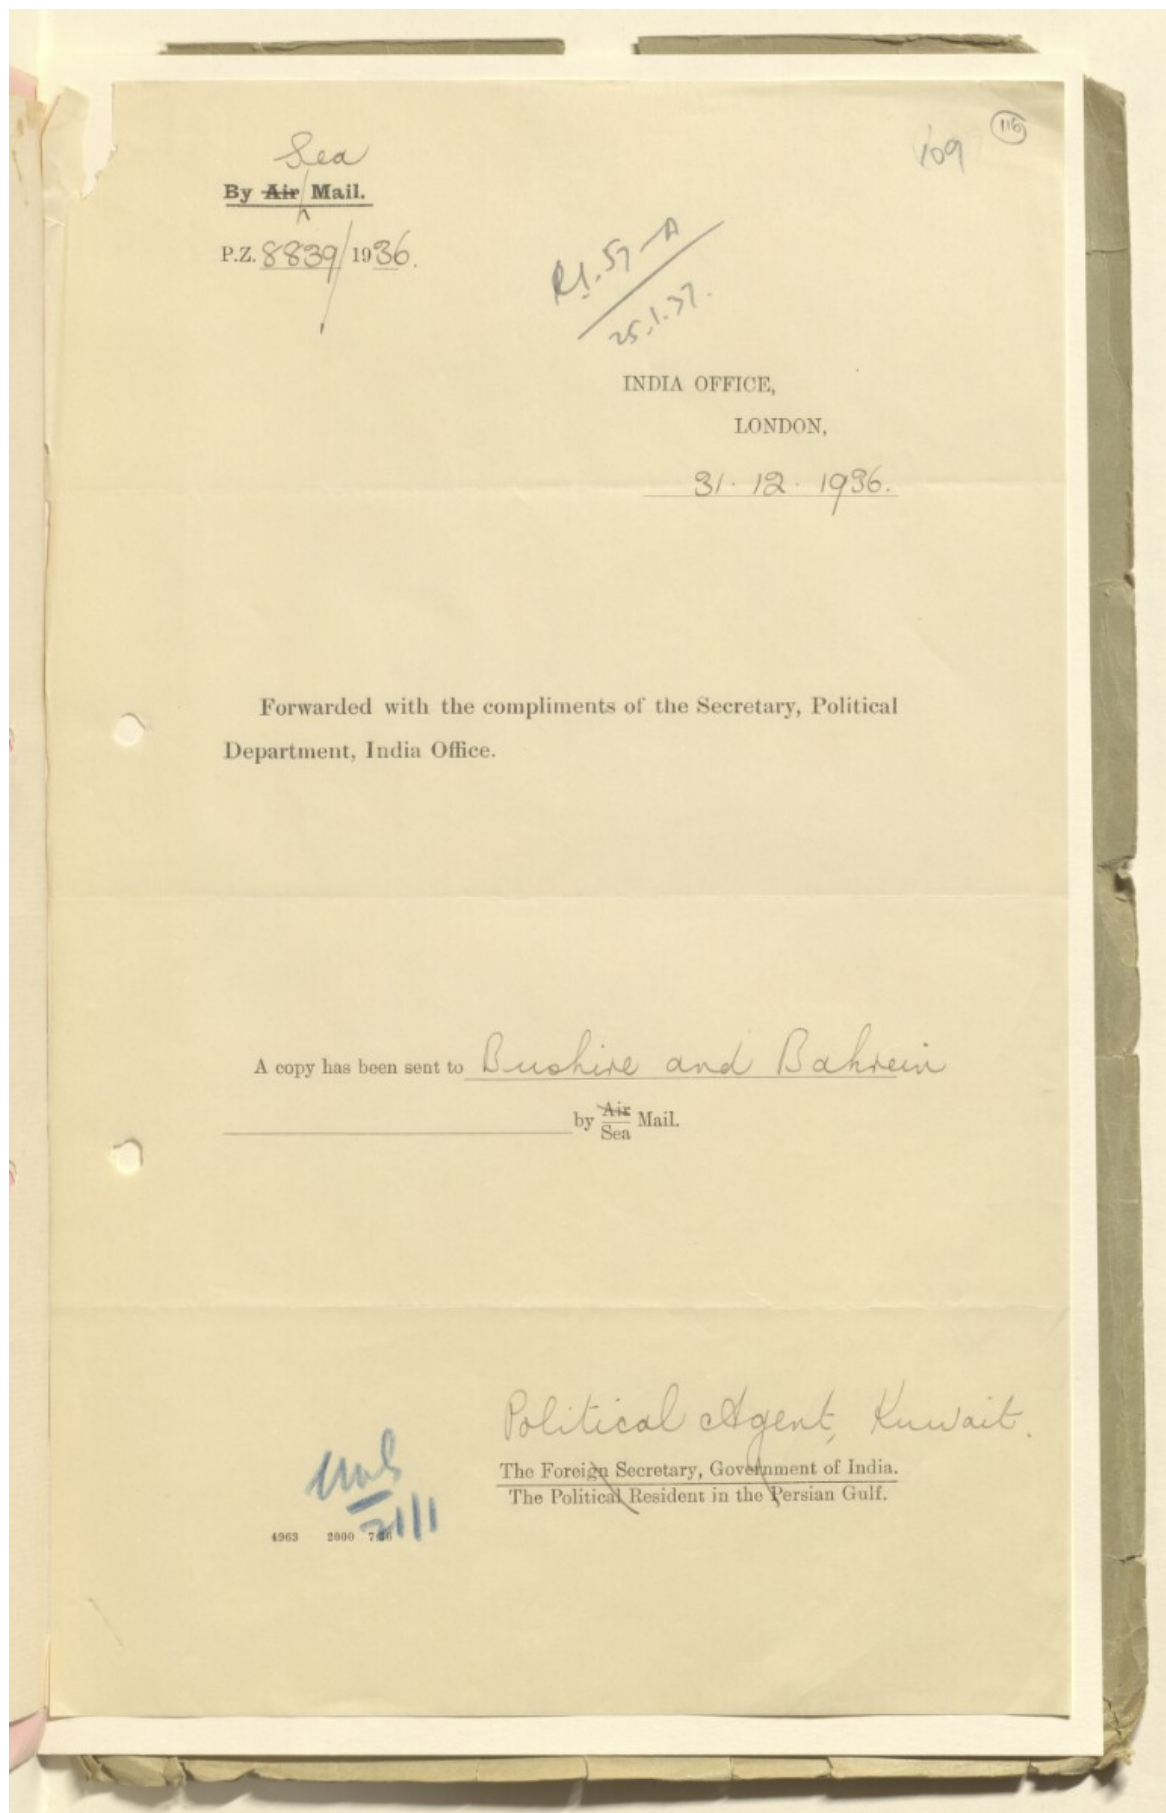 116
109
Sea
By Air Mail.
P.Z. 8839/1936.
25.1.37.
INDIA OFFICE,
LONDON,
31. 12. 1936.
Forwarded with the compliments of the Secretary, Political
Department, India Office.
A copy has been sent to Bushire and Bahrein
by Air Mail.
Sea
Political Agent, Kuwait.
The Foreign Secretary, Government of India.
The Political Resident in the Persian Gulf.
4963 2000 7.36